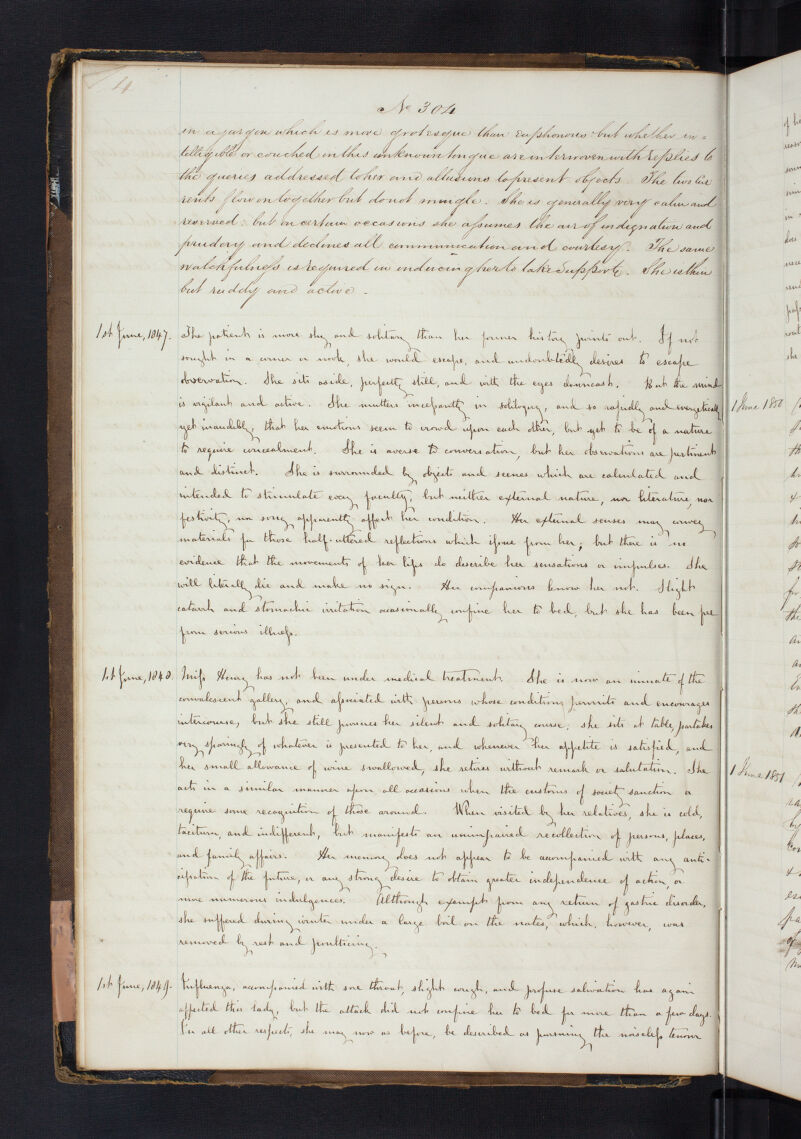 14
No 304
in a jargon which is more grotesque than euphonous: but whether in=
telligible or couched in this unknown tongue are interwoven with replies to
the queries addressed to her and allusions to present objects. The two cur
rents flow on together but do not mingle. She is generally very calm and
reserved: but on certain occasions she assumes the air of indignation and
prudery and declines all communication and courtesy. The same
watchfulness is required in inducing her to take support. She is thin
but ruddy and active.
1st June, 1847. The patient is more shy and solitary than her former history points out. If not
sought in a corner or nook, she would escape, and undoubtedly desires to escape
observation. She sits aside, perfectly still, and with the eyes downcast. But the mind
is vigilant and active. She mutters incessantly in soliloquy, and so rapidly and energetically
yet inaudibly, that her emotions seem to crowd upon each other, but yet to be of a nature
to require concealment. She is averse to conversation, but her observations are pertinent
and distinct. She is surrounded by objects and scenes which are calculated and
intended to stimulate every faculty, but neither external nature, nor literature, nor
festivity, nor song apparently affect her condition. Her external senses may convey
materials for those half-uttered reflections which issue from her; but there is no
evidence that the movements of her lips do describe her sensations or impulses. She
will literally die and make no sign. Her companions know her not. Slight
catarrh and stomachic irritation occasionally confine her to bed, but she has been free
from serious illness.
1st June, 1848. Miss Henry has not been under medical treatment. She is now an inmate of the
convalescent gallery, and associated with persons whose condition permits and encourages
intercourse, but she still pursues her silent and solitary course; she sits at table, partakes
very sparingly of whatever is presented to her, and whenever her appetite is satisfied, and
her small allowance of wine swallowed, she retires without remark or salutation. She
acts in a similar manner upon all occasions when the customs of society sanction or
require some recognition of those around. When visited by her relatives, she is cold,
taciturn, and indifferent, but manifests an unimpaired recollection of persons, places,
and family affairs. Her memory does not appear to be accompanied with any anti-
cipation of the future, or any strong desire to obtain greater independence of action, or
more numerous indulgences. Although exempt from any return of gastric disorder,
she suffered during winter under a large boil on the nates, which, however, was
removed by rest and poulticing.
1st June, 1849. Influenza, accompanied with sore throat, slight cough, and profuse salivation has again
affected this lady, but the attack did not confine her to bed for more than a few days.
In all other respects, she may now as before, be described as pursuing the noiseless tenour
1 June 1850
1 June 1851